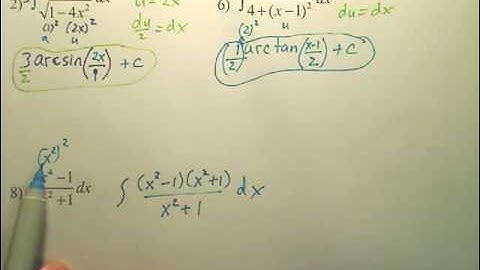 2) ∫ √1-4x² u=2x
(1)² (2x)² du/2 = dx
a u
3/2 arcsin(2x/1) + C
6) ∫ 4+(x-1)² du=dx
(2)² u
(1/2) arctan(x-1/2) + C
(x²)²
8) x²-1/x²+1 dx ∫ (x²-1)(x²+1)/x²+1 dx